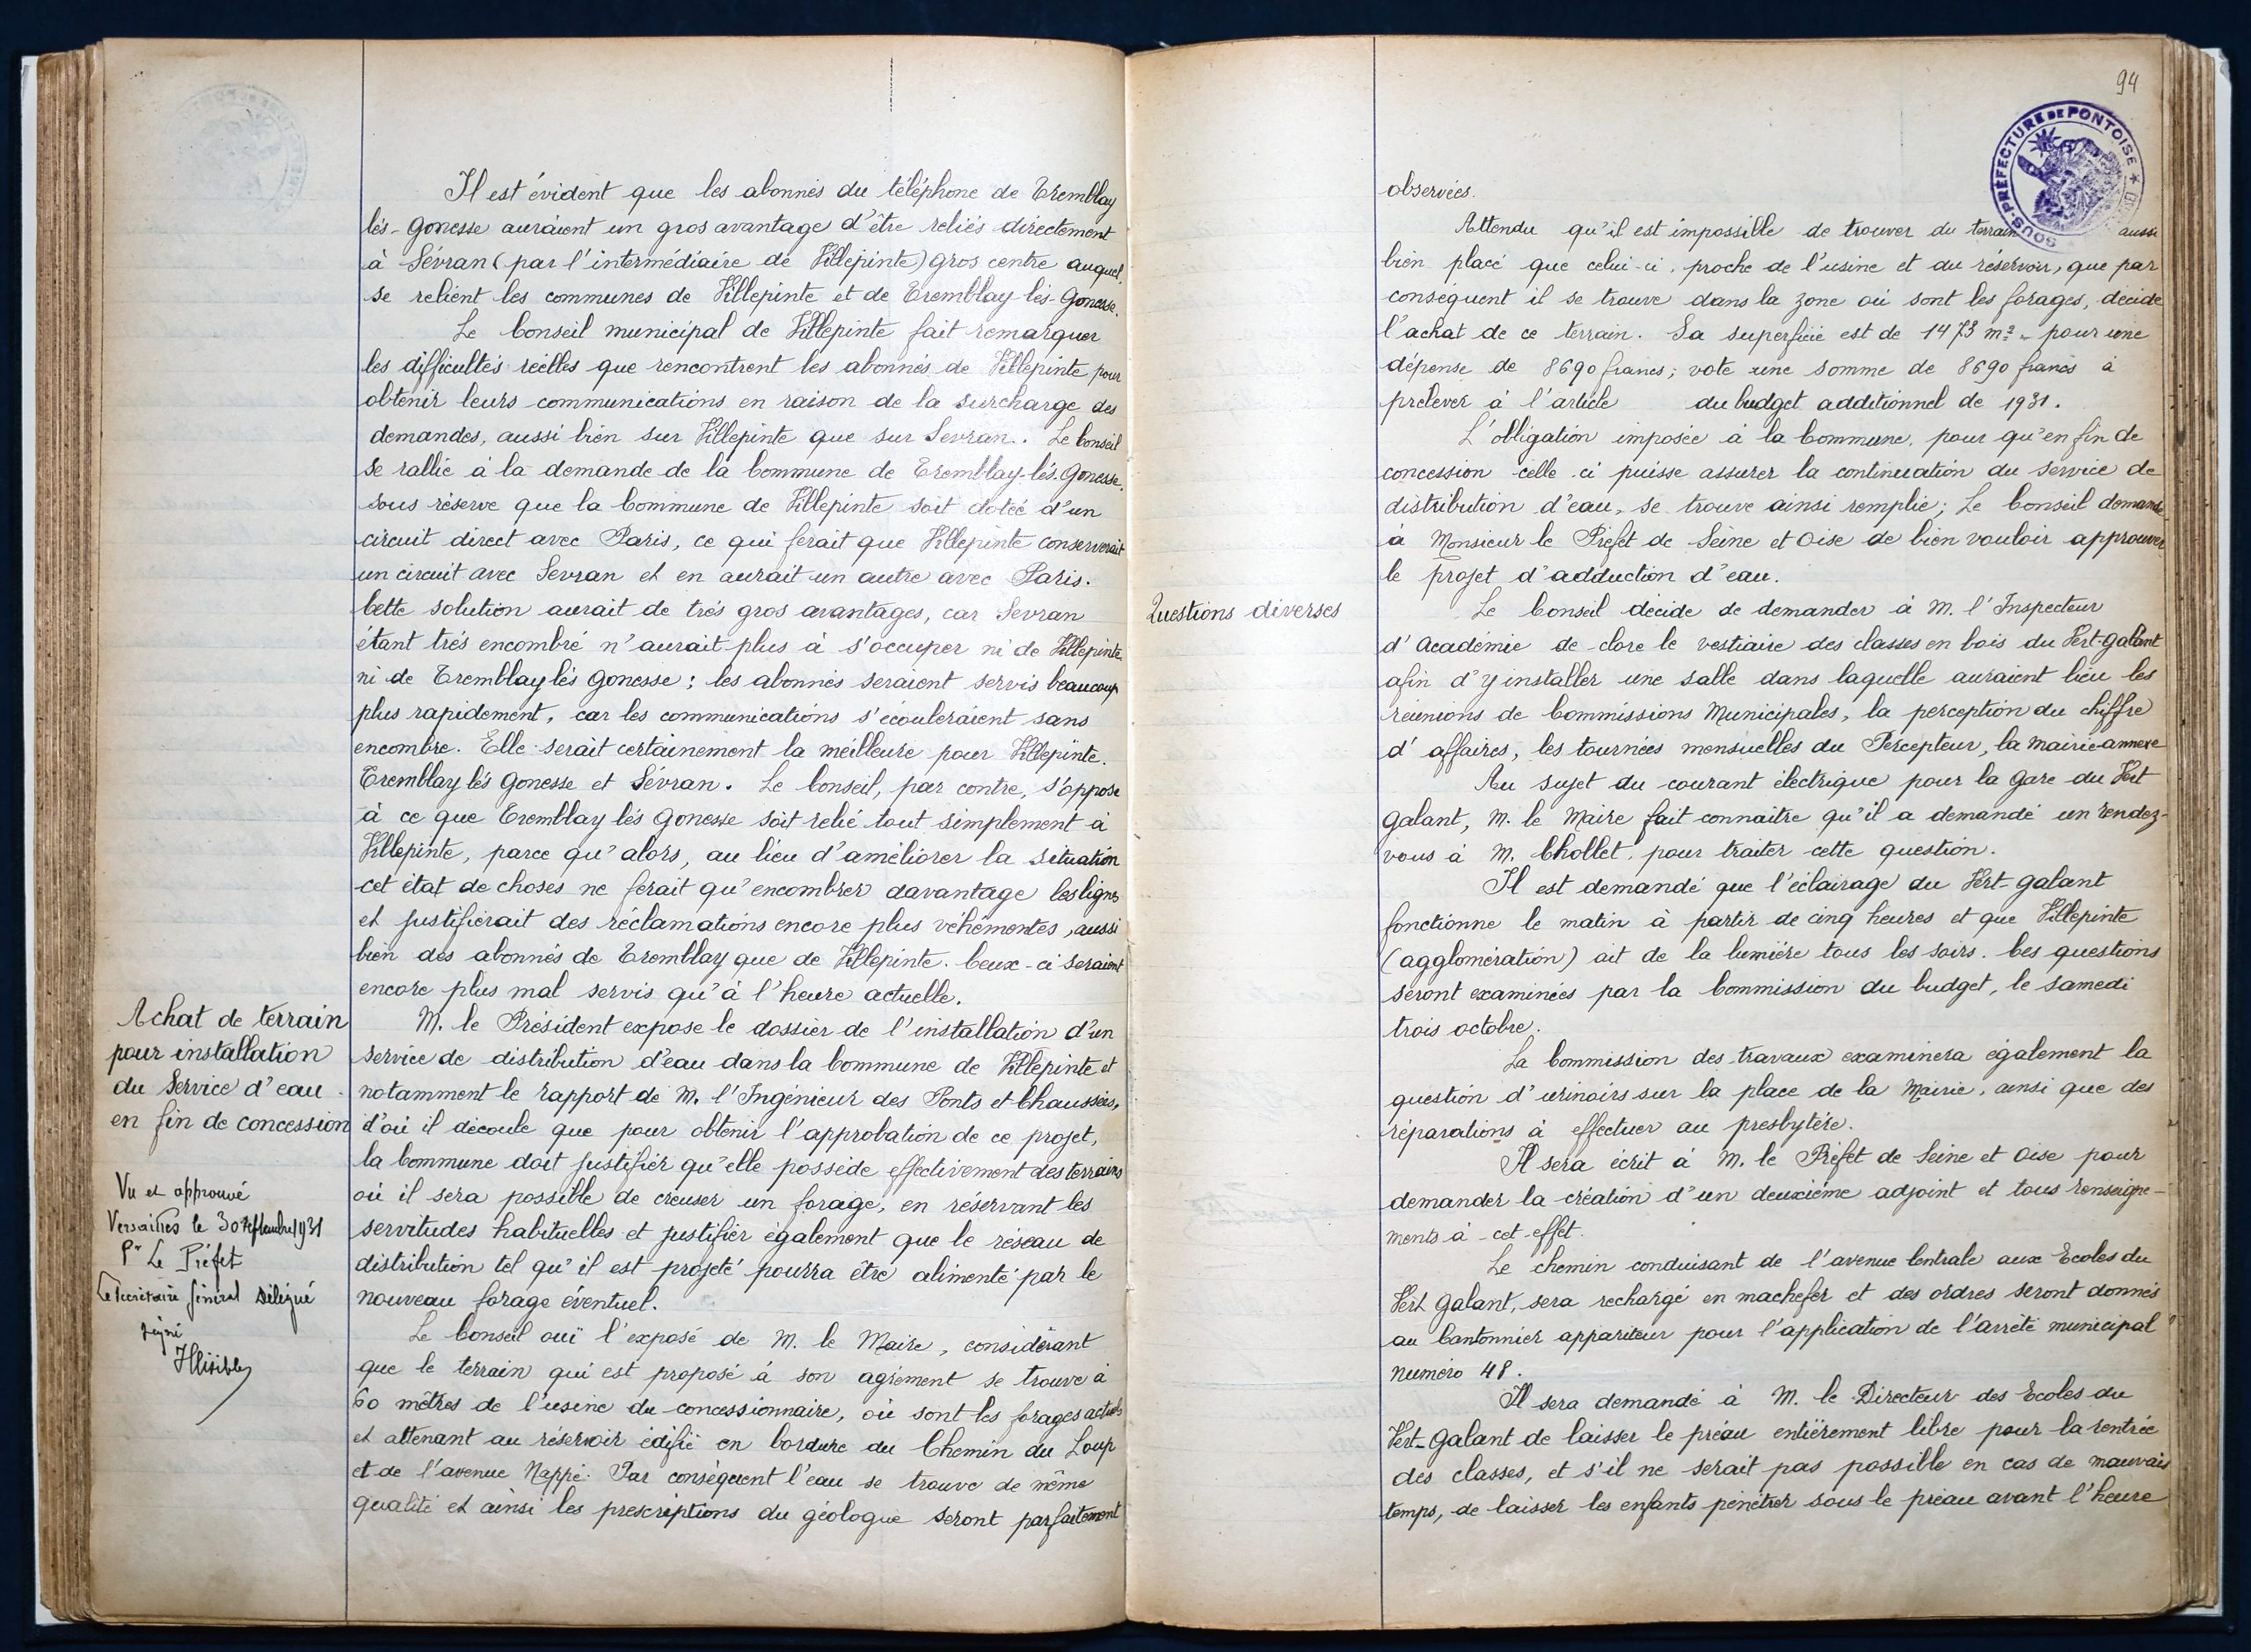 Il est évident que les abonnés du téléphone de Tremblay
lès-Gonesse auraient un gros avantage d'être reliés directement
à Sévran (par l'intermédiaire de Villepinte) gros centre auquel
se relient les communes de Villepinte et de Tremblay-lès-Gonesse.
Le Conseil municipal de Villepinte fait remarquer
les difficultés réelles que rencontrent les abonnés de Villepinte pour
obtenir leurs communications en raison de la surcharge des
demandes, aussi bien sur Villepinte que sur Sevran. Le Conseil
se rallie à la demande de la Commune de Tremblay-lès-Gonesse
sous réserve que la Commune de Villepinte soit dotée d'un
circuit direct avec Paris, ce qui ferait que Villepinte conserverait
un circuit avec Sevran et en aurait un autre avec Paris.
Cette solution aurait de très gros avantages, car Sevran
étant très encombré n'aurait plus à s'occuper ni de Villepinte
ni de Tremblay lès Gonesse ; les abonnés seraient servis beaucoup
plus rapidement, car les communications s'écouleraient sans
encombre. Elle serait certainement la meilleure pour Villepinte.
Tremblay lès Gonesse et Sévran. Le Conseil, par contre, s'oppose
à ce que Tremblay lès Gonesse soit relié tout simplement à
Villepinte, parce qu'alors, au lieu d'améliorer la situation
cet état de choses ne ferait qu'encombrer davantage les lignes
et justifierait des réclamations encore plus véhémentes, aussi
bien des abonnés de Tremblay que de Villepinte. Ceux-ci seraient
encore plus mal servis qu'à l'heure actuelle.
Achat de terrain
pour installation
du Service d'eau
en fin de concession
Vu et approuvé
Versailles le 30 septembre 1931
Pr Le Préfet
Le Secrétaire Général délégué
signé
Illisible
M. le Président expose le dossier de l'installation d'un
service de distribution d'eau dans la Commune de Villepinte et
notamment le rapport de M. l'Ingénieur des Ponts et Chaussées,
d'où il découle que pour obtenir l'approbation de ce projet,
la Commune doit justifier qu'elle possède effectivement des terrains
où il sera possible de creuser un forage, en réservant les
servitudes habituelles et justifier également que le réseau de
distribution tel qu'il est projeté pourra être alimenté par le
nouveau forage éventuel.
Le Conseil ouï l'exposé de M. le Maire, considérant
que le terrain qui est proposé à son agrément se trouve à
60 mètres de l'usine du concessionnaire, où sont les forages actuels
et attenant au réservoir édifié en bordure du Chemin du Loup
et de l'avenue Nappé. Par conséquent l'eau se trouve de même
qualité et ainsi les prescriptions du géologue seront parfaitement
94
SOUS-PRÉFECTURE DE PONTOISE
observées.
Attendu qu'il est impossible de trouver du terrain aussi
bien placé que celui-ci, proche de l'usine et du réservoir, que par
conséquent il se trouve dans la zone où sont les forages, décide
l'achat de ce terrain. Sa superficie est de 1473 m² pour une
dépense de 8690 francs ; vote une somme de 8690 francs à
prélever à l'article du budget additionnel de 1931.
L'obligation imposée à la Commune, pour qu'en fin de
concession celle-ci puisse assurer la continuation du service de
distribution d'eau, se trouve ainsi remplie ; Le Conseil demande
à Monsieur le Préfet de Seine et Oise de bien vouloir approuver
le projet d'adduction d'eau.
Questions diverses
Le Conseil décide de demander à M. l'Inspecteur
d'Académie de clore le vestiaire des classes en bois du Vert-Galant
afin d'y installer une salle dans laquelle auraient lieu les
réunions de Commissions Municipales, la perception du chiffre
d'affaires, les tournées mensuelles du Percepteur, la mairie-annexe
Au sujet du courant électrique pour la gare du Vert
galant, M. le Maire fait connaitre qu'il a demandé un rendez-
vous à M. Chollet, pour traiter cette question.
Il est demandé que l'éclairage du Vert-galant
fonctionne le matin à partir de cinq heures et que Villepinte
(agglomération) ait de la lumière tous les soirs. Ces questions
seront examinées par la Commission du budget, le samedi
trois octobre.
La Commission des travaux examinera également la
question d'urinoirs sur la place de la Mairie, ainsi que des
réparations à effectuer au presbytère.
Il sera écrit à M. le Préfet de Seine et Oise pour
demander la création d'un deuxième adjoint et tous renseigne-
ments à cet effet.
Le chemin conduisant de l'avenue Centrale aux Ecoles du
Vert Galant, sera rechargé en machefer et des ordres seront donnés
au Cantonnier appariteur pour l'application de l'arrêté municipal
numéro 48.
Il sera demandé à M. le Directeur des Ecoles du
Vert-Galant de laisser le préau entièrement libre pour la rentrée
des classes, et s'il ne serait pas possible en cas de mauvais
temps, de laisser les enfants pénétrer sous le préau avant l'heure